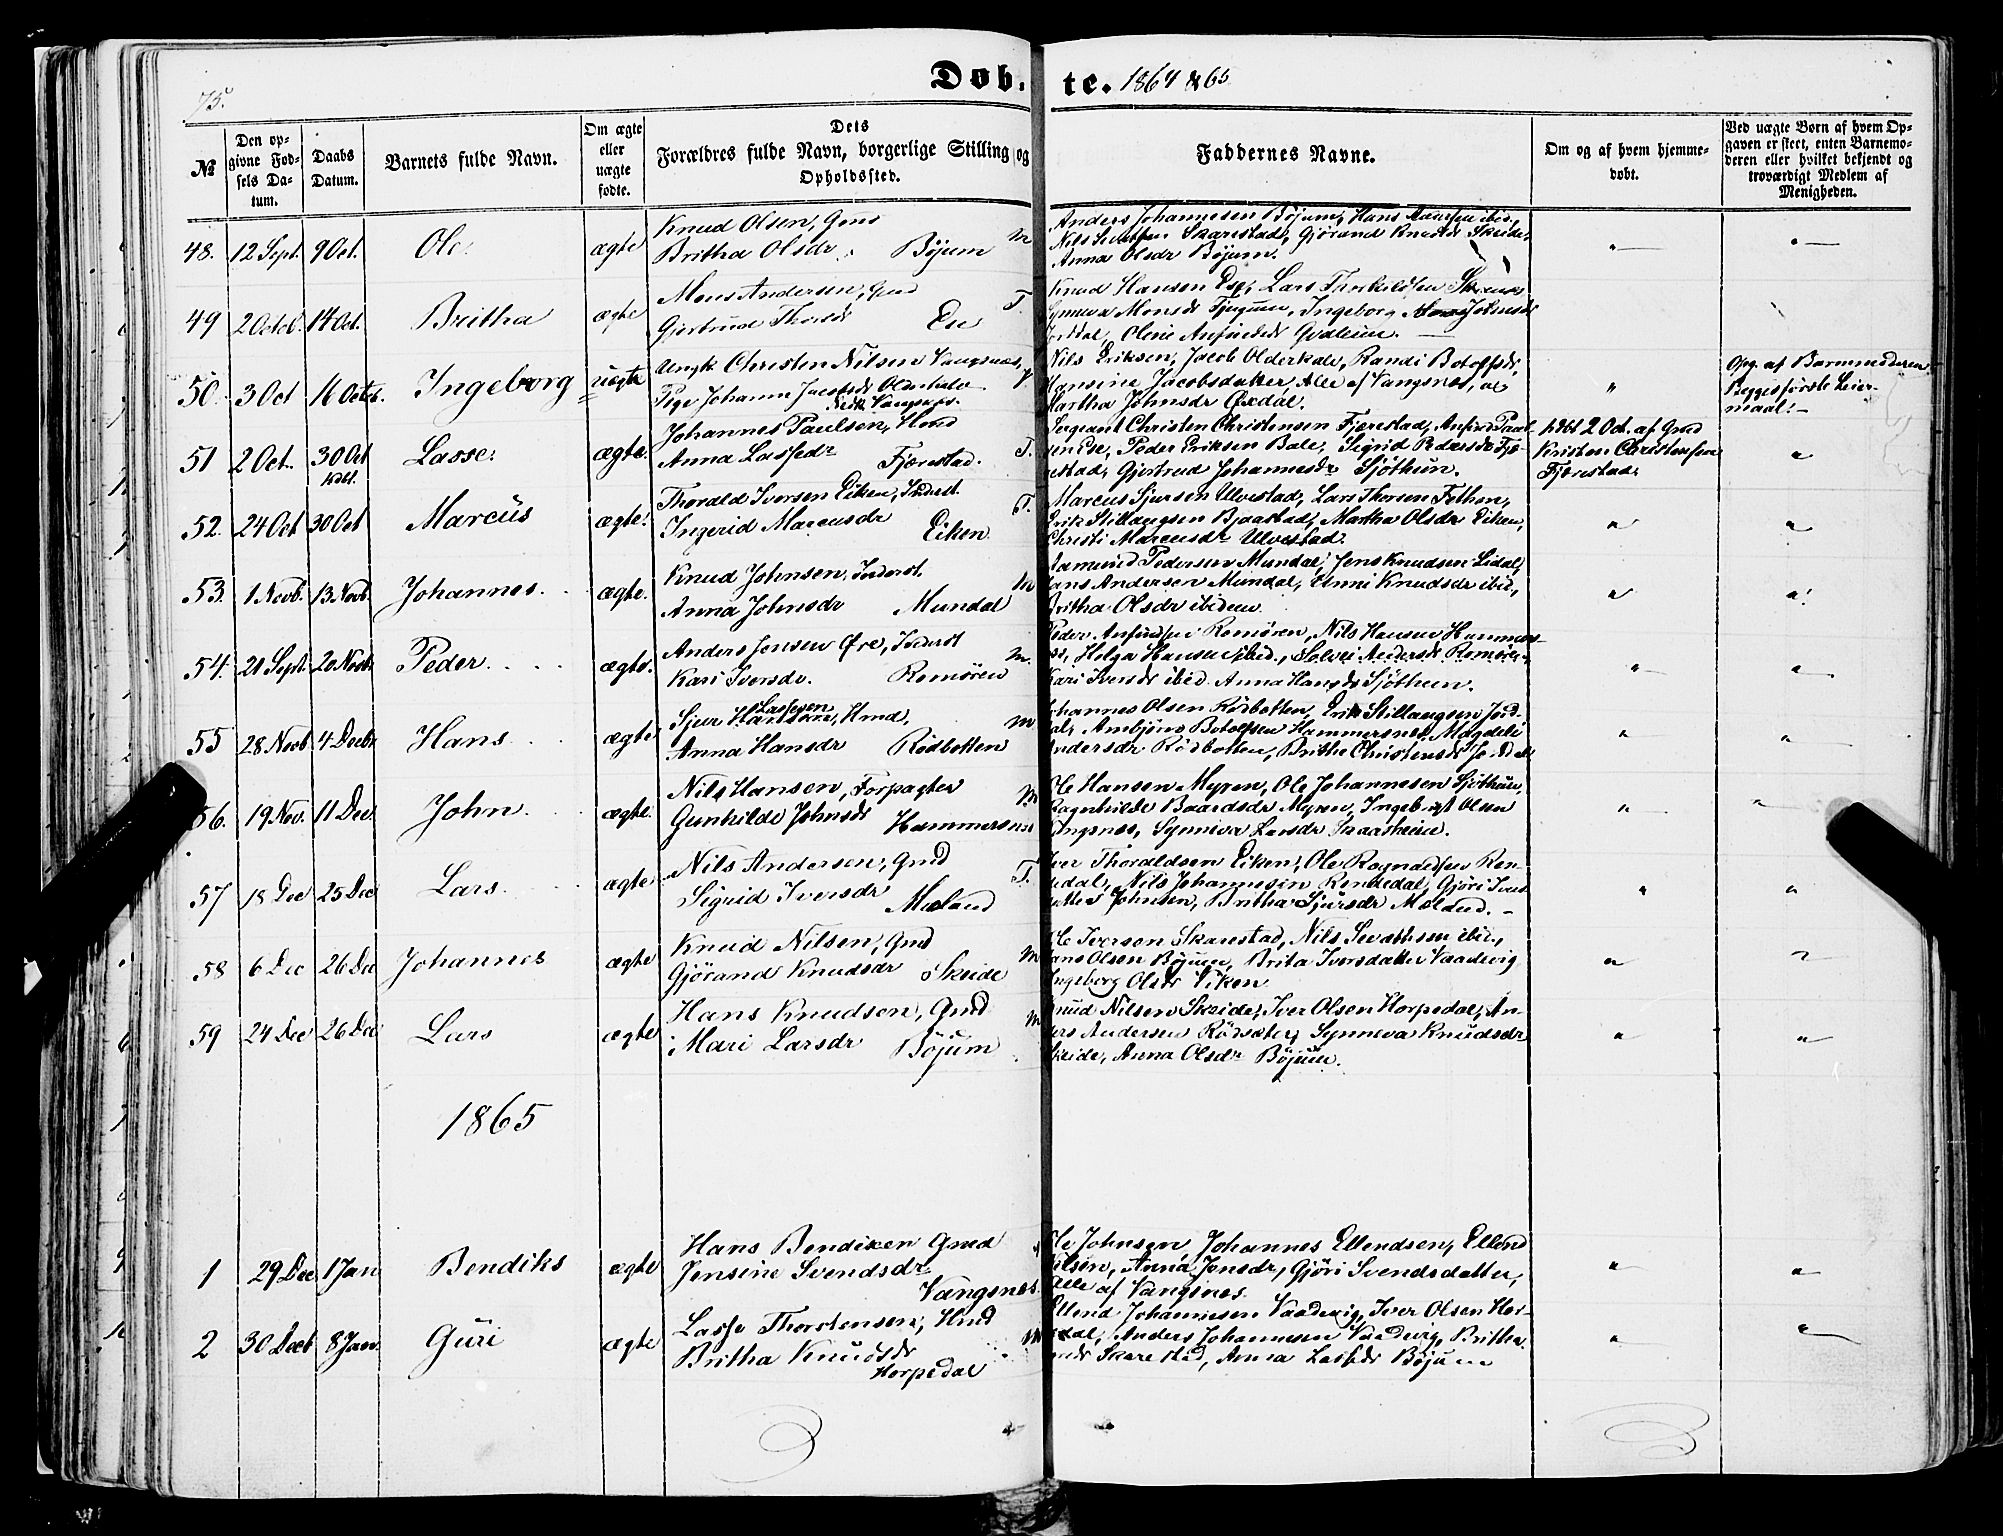 75.
Døb. te. 1864 & 65
№
Den opgivne Fødsels Datum.
Daabs Datum.
Barnets fulde Navn.
Om ægte eller uægte fødte.
Dets Forældres fulde Navn, borgerlige Stilling og Opholdssted.
Faddernes Navne.
Om og af hvem hjemmedøbt.
Ved uægte Børn af hvem Opgaven er skeet, enten Barnemoderen eller hvilket bekjendt og troværdigt Medlem af Menigheden.
48. 12 Sept. 9 Oct. Ole ægte
Knud Olsen, Gmd
Britha Olsdr. Böjum M
Anders Johannesen Böjum, Hans ibid.,
Nils Skarestad, Gjörand Knudsdr Skeide,
Anna Olsdr Böjum.
49 2 Octob. 14 Oct. Britha ægte
Mons Andersen, Gmd
Gjertrud Thorsdr Ese T.
Knud Hansen Ese, Lars Thorkildsen
Synneva Monsdr Ingeborg Johnsdr
Oline
50. 3 Oct 16 Octob. Ingeborg uægte
Ungk Christen Nilsen Vangsnæs,
Pige Johanne Jacobsdr Olderkale
Vangsnæs.
Nils Eriksen, Jacob Olderkale, Randi Botolfsdr,
Hansine Jacobsdatter, Alle af Vangsnæs, og
Martha Johnsdr Öxdal.
Opg. af Barnemoderen
Begges förste Leier-
maal. -
51 2 Oct. 30 Oct Lasse. ægte.
hdbt.
Johannes Paulsen, Hmd
Anna Lassedr Fjærestad. T.
Sergeant Christen Christensen Fjærestad, Anfind Paul-
sen Ese, Peder Eriksen Bale, Sigrid Pedersdr Fjæ-
restad, Gjertrud Johannesdr Sjöthun.
hdbt 2 Oct. af Gmd
Kristen Christensen
Fjærestad.
52. 24 Oct 30 Oct Marcus ægte.
Thorald Iversen Eiken, Inderst.
Ingerid Marcusdr Eiken T.
Marcus Sjursen Ulvestad, Lars Thorsen Fethen,
Erik Stillaugsen Bjaastad, Martha Olsdr Eiken,
Christi Marcusdr Ulvestad.
53. 1 Novb. 13 Novb. Johannes. ægte.
Knud Johnsen, Inderst.
Anna Johnsdr Mundal M
Aamund Pedersen Mundal, Jens Knudsen Lidal,
Hans Andersen Mundal, Anni Knudsdr ibid.,
Britha Olsdr ibidem.
54. 21 Sept. 20 Novb. Peder. ægte.
Anders Jensen Øre, Inderst
Kari Iversdr. Romören M.
Peder Anfindsen Romören, Nils Hansen Hammers-
næs, Helga Hansen ibid., Solvei Andersdr Romören,
Kari Iversdr ibid. Anna Hansdr Sjöthun.
55 28 Novb 4 Decbr Hans ægte
Sjur Lassesen, Hmd,
Anna Hansdr Rödbotten M
Johannes Olsen Rödbotten, Erik Stillaugsen Jord-
dal, Ambjörn Botolfsen Hammersnes, Magdeli
Andersdr Rödbotten, Brithe Christensdr Jorddal
56. 19 Nov. 11 Dec John. ægte.
Nils Hansen, Forpagter
Gunhilde Johnsdr Hammersnes M
Ole Hansen Myren, Ole Johannesen Sjöthun,
Ragnhilde Baardsdr Myren, Ingebrigt Olsen
Synneva Larsdr
57 18 Dec 25 Dec Lars. ægte
Nils Andersen, Gmd
Sigrid Iversdr Mæland T.
Iver Thoraldsen Eiken, Ole Ragnaldsen Ren-
dedal, Nils Johannesen Rendedal, Gjöri Ivers
datter Johnsen, Britha Sjursdr Mæland. -
58 6 Dec 26 Dec Johannes ægte
Knud Nilsen, Gmd
Gjörand Knudsdr Skeide M
Ole Iversen Skarestad, Nils ibid.,
Hans Olsen Böjum, Brita Iversdatter Vaadevig,
Ingeborg Olsdr Viken
59 24 Dec 26 Dec Lars ægte
Hans Knudsen, Gmd
Mari Larsdr Böjum M
Knud Nilsen Skeide, Iver Olsen Horpedal, An-
ders Andersen Rödseter, Synneva Knudsdr
Skeide, Anna Olsdr Böjum.
1865
1 29 Dec 1 Jan Bendiks ægte
Hans Bendixen Gmd
Jensine Svendsdr
Vangsnes.
Ole Johnsen, Johannes Ellendsen, Ellend
Nilsen, Anna Jensdr, Gjöri Svendsdatter,
Alle af Vangsnes.
2 30 Decb 8 Jan Guri ægte
Lasse Thorstensen, Hmd
Britha Knudsdr
Horpedal M
Ellend Johannesen Vaadevig, Iver Olsen Hor-
pedal, Anders Johannesen Vaadevig, Britha
Skarestad, Anna Lassedr Böjum